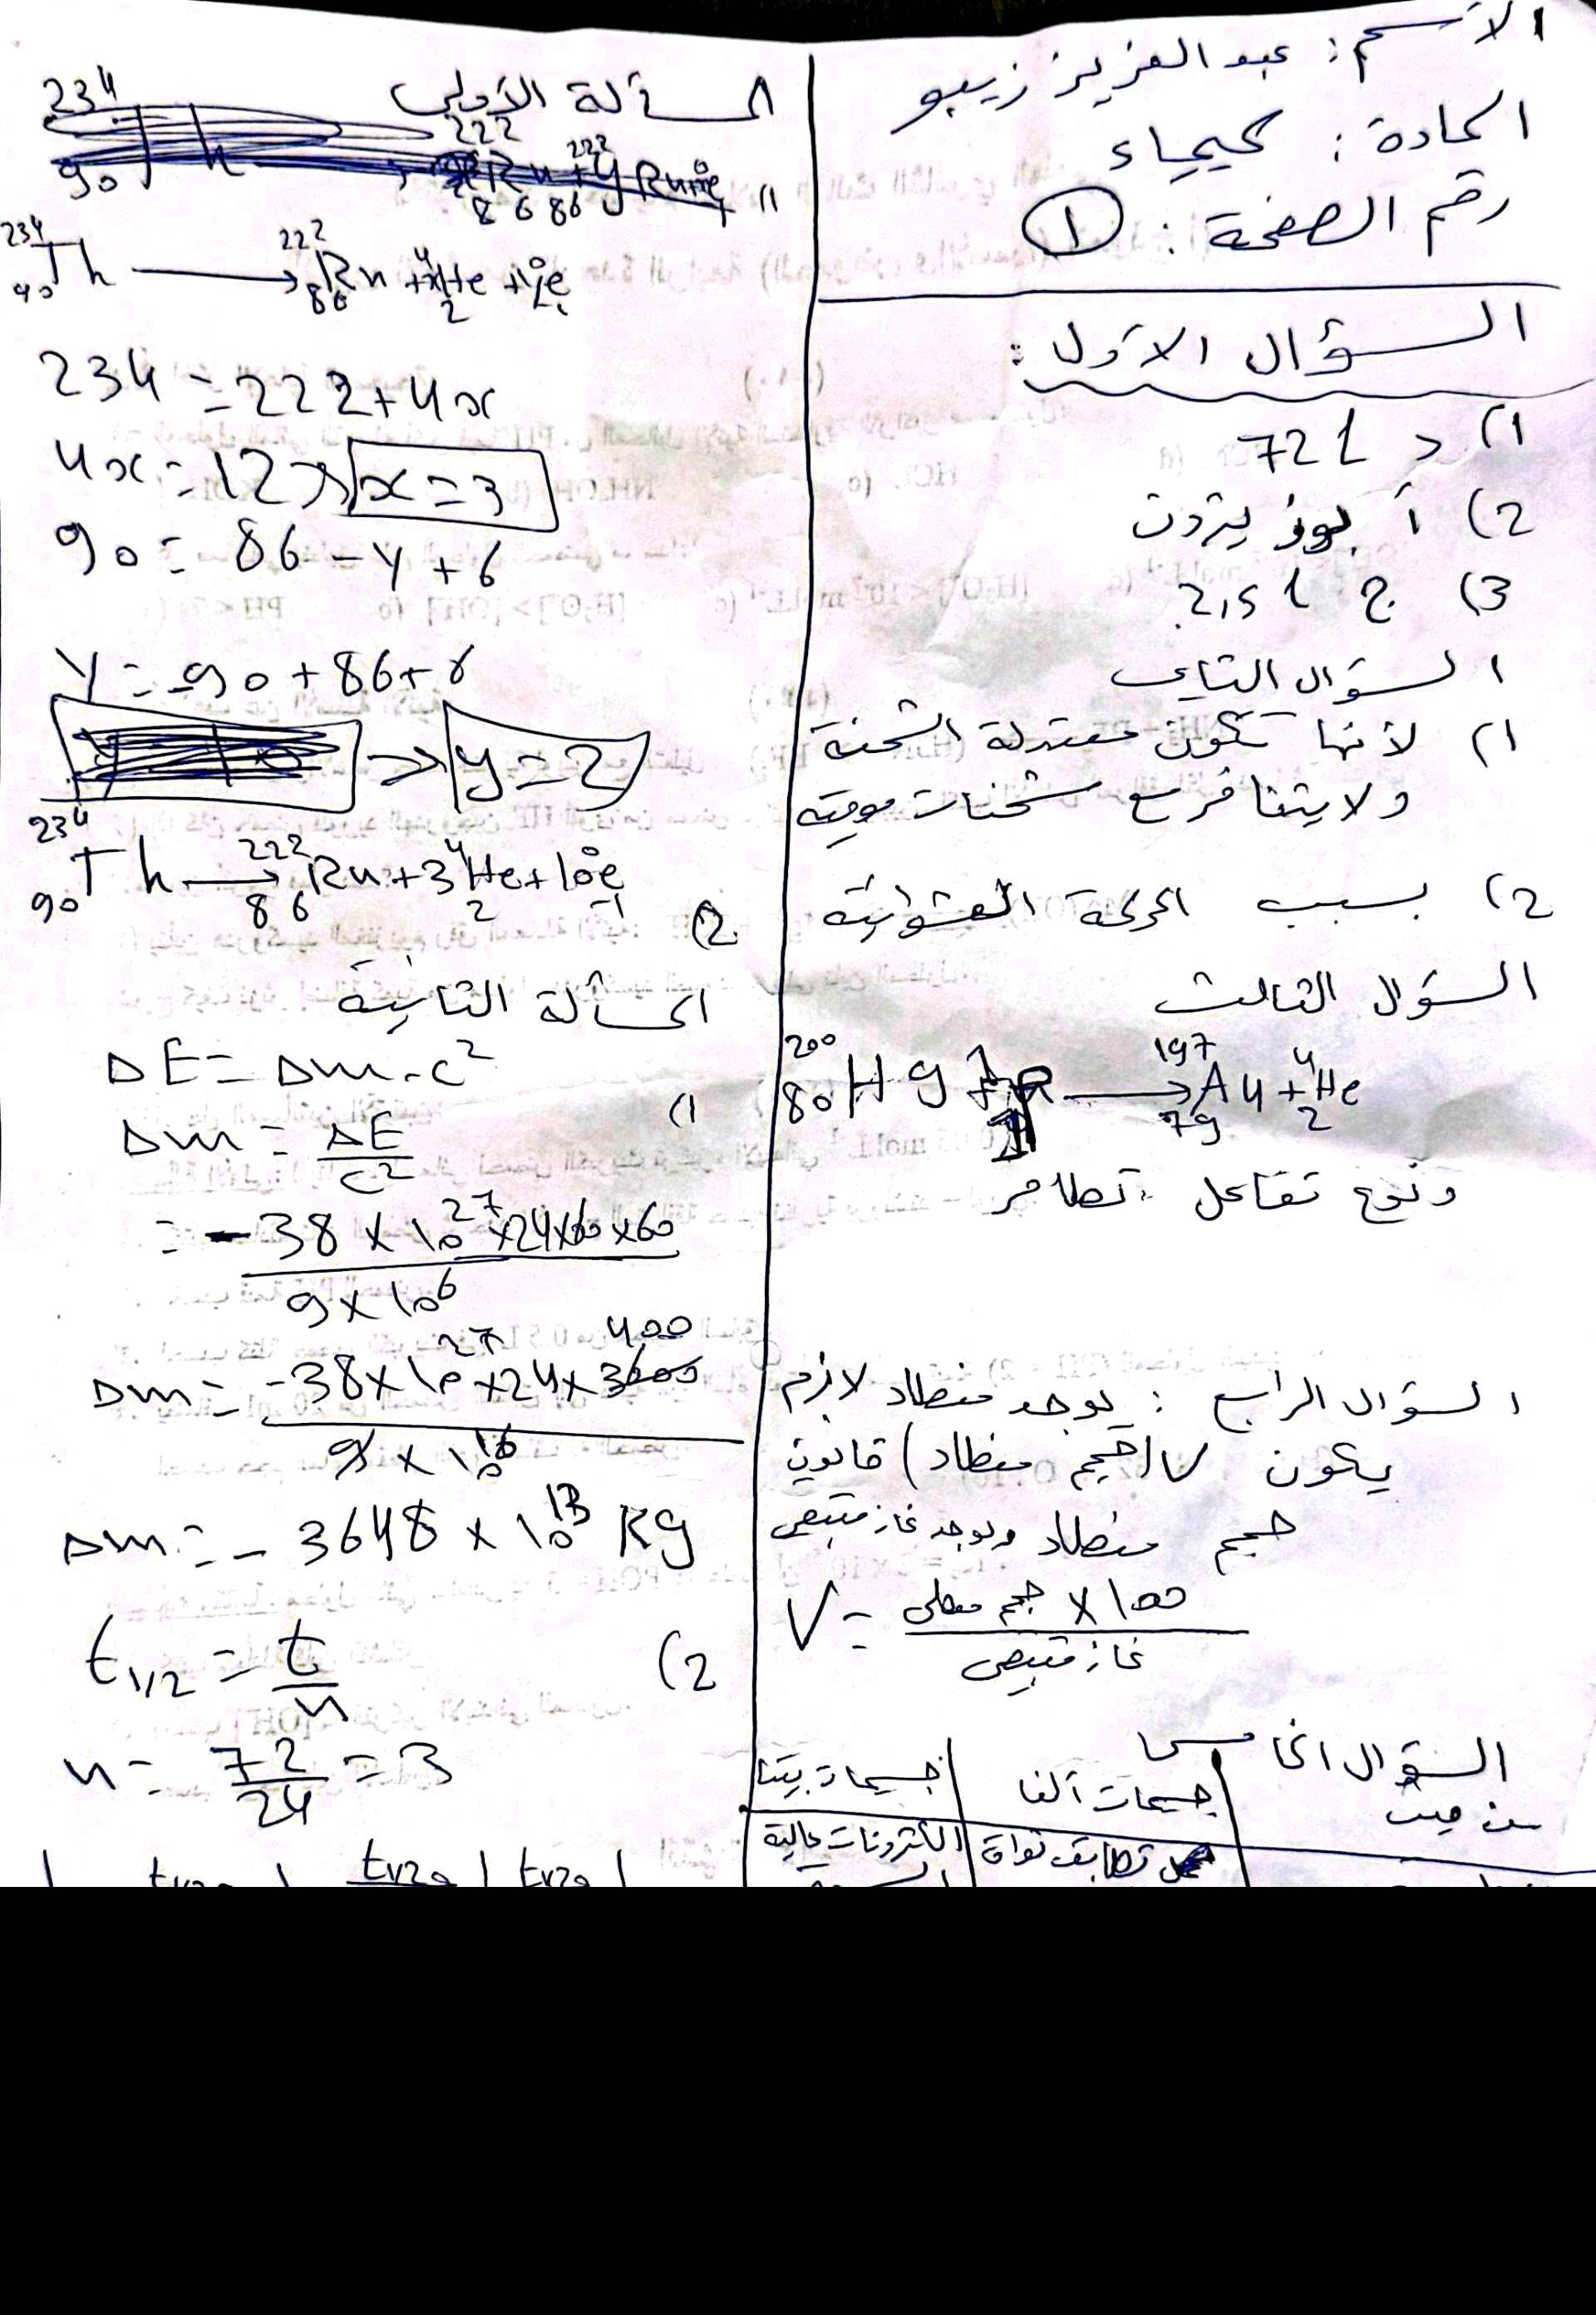 الاسم: عبد العزيز زيبو
المادة: كيمياء
رقم الصفحة: 1
السؤال الأول:
1) د 72 L
2) أ بوزيترون
3) ج 2,5 L
السؤال الثاني
1) لأنها تكون معتدلة الشحنة
ولا يتنافر مع شحنات موجبة
2) بسبب الحركة العشوائية
السؤال الثالث
²⁰⁰₈₀Hg + → ¹⁹⁷₇₉Au + ⁴₂He
ونوع تفاعل: تطافر
السؤال الرابع: يوجد منطاد لازم
يكون V (حجم منطاد) قانون
حجم منطاد ويوجد غاز
V = حجم × 100 / غاز
السؤال الخامس
من حيث | جسيمات ألفا | جسيمات بيتا
تطابق نواة | الكترونات عالية
المسألة الأولى
1)
²³⁴₉₀Th → ²²²₈₆Rn + x⁴₂He + y⁰₋₁e
234 = 222 + 4x
4x = 12 ⇒ x = 3
90 = 86 - y + 6
y = -90 + 86 + 6
⇒ y = 2
²³⁴₉₀Th → ²²²₈₆Rn + 3⁴₂He + ⁰₋₁e
2)
المسألة الثانية
ΔE = Δm . c²
1) Δm = ΔE / c²
= -38 × 10²⁷ × 24 × 60 × 60 / 9 × 10⁶
Δm = -38 × 10²⁷ × 24 × 3600 400 / 9 × 10¹⁶
Δm = - 3648 × 10¹³ Kg
2) t1/2 = t / n
n = 72 / 24 = 3
t1/2 | t1/2 | t1/2